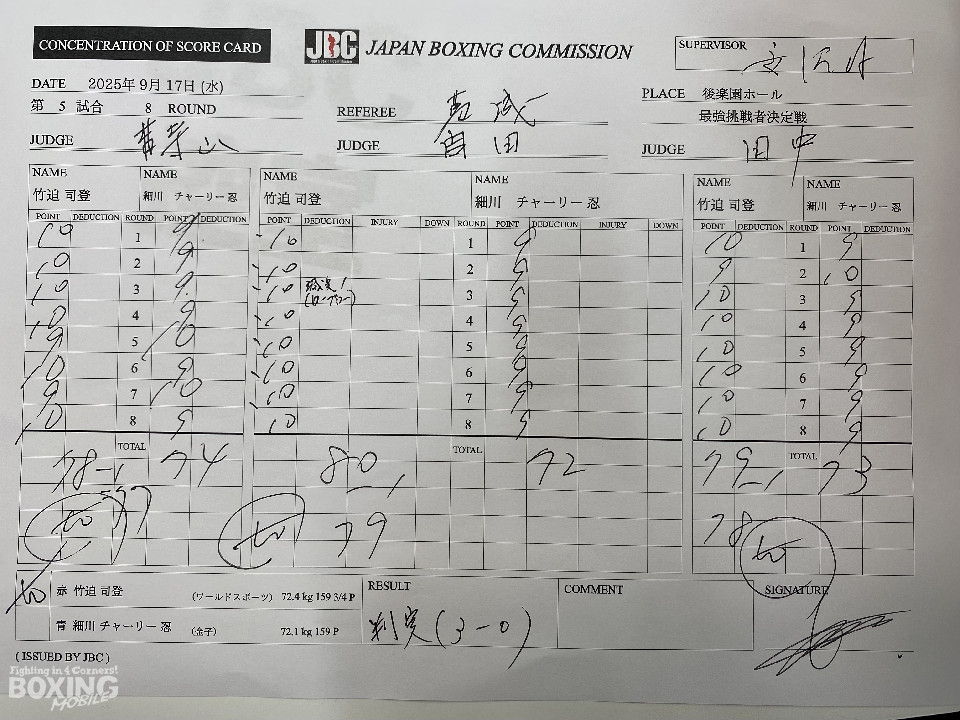 CONCENTRATION OF SCORE CARD
JBC JAPAN BOXING COMMISSION
SUPERVISOR
DATE 2025年9月17日(水)
第 5 試合 8 ROUND
REFEREE
PLACE 後楽園ホール
最強挑戦者決定戦
JUDGE
JUDGE
JUDGE 田中
NAME NAME NAME NAME NAME NAME
竹迫 司登 細川 チャーリー 忍 竹迫 司登 細川 チャーリー 忍 竹迫 司登 細川 チャーリー 忍
POINT DEDUCTION ROUND POINT DEDUCTION POINT DEDUCTION INJURY DOWN ROUND POINT DEDUCTION INJURY DOWN POINT DEDUCTION ROUND POINT DEDUCTION
10 1 9 10 1 9 10 1 9
10 2 9 10 2 9 9 2 10
10 3 9 10 減点1 (ローブロー) 3 9 10 3 9
10 4 9 10 4 9 10 4 9
9 5 10 10 5 9 10 5 9
10 6 9 10 6 9 10 6 9
9 7 10 10 7 9 10 7 9
10 8 9 10 8 9 10 8 9
TOTAL TOTAL TOTAL
78-1 74 80-1 72 79-1 73
77 79 78
赤 竹迫 司登 (ワールドスポーツ) 72.4 kg 159 3/4 P
青 細川 チャーリー 忍 (金子) 72.1 kg 159 P
RESULT
判定(3-0)
COMMENT
SIGNATURE
( ISSUED BY JBC )
Fighting in 4 Corners!
BOXING
MOBILE